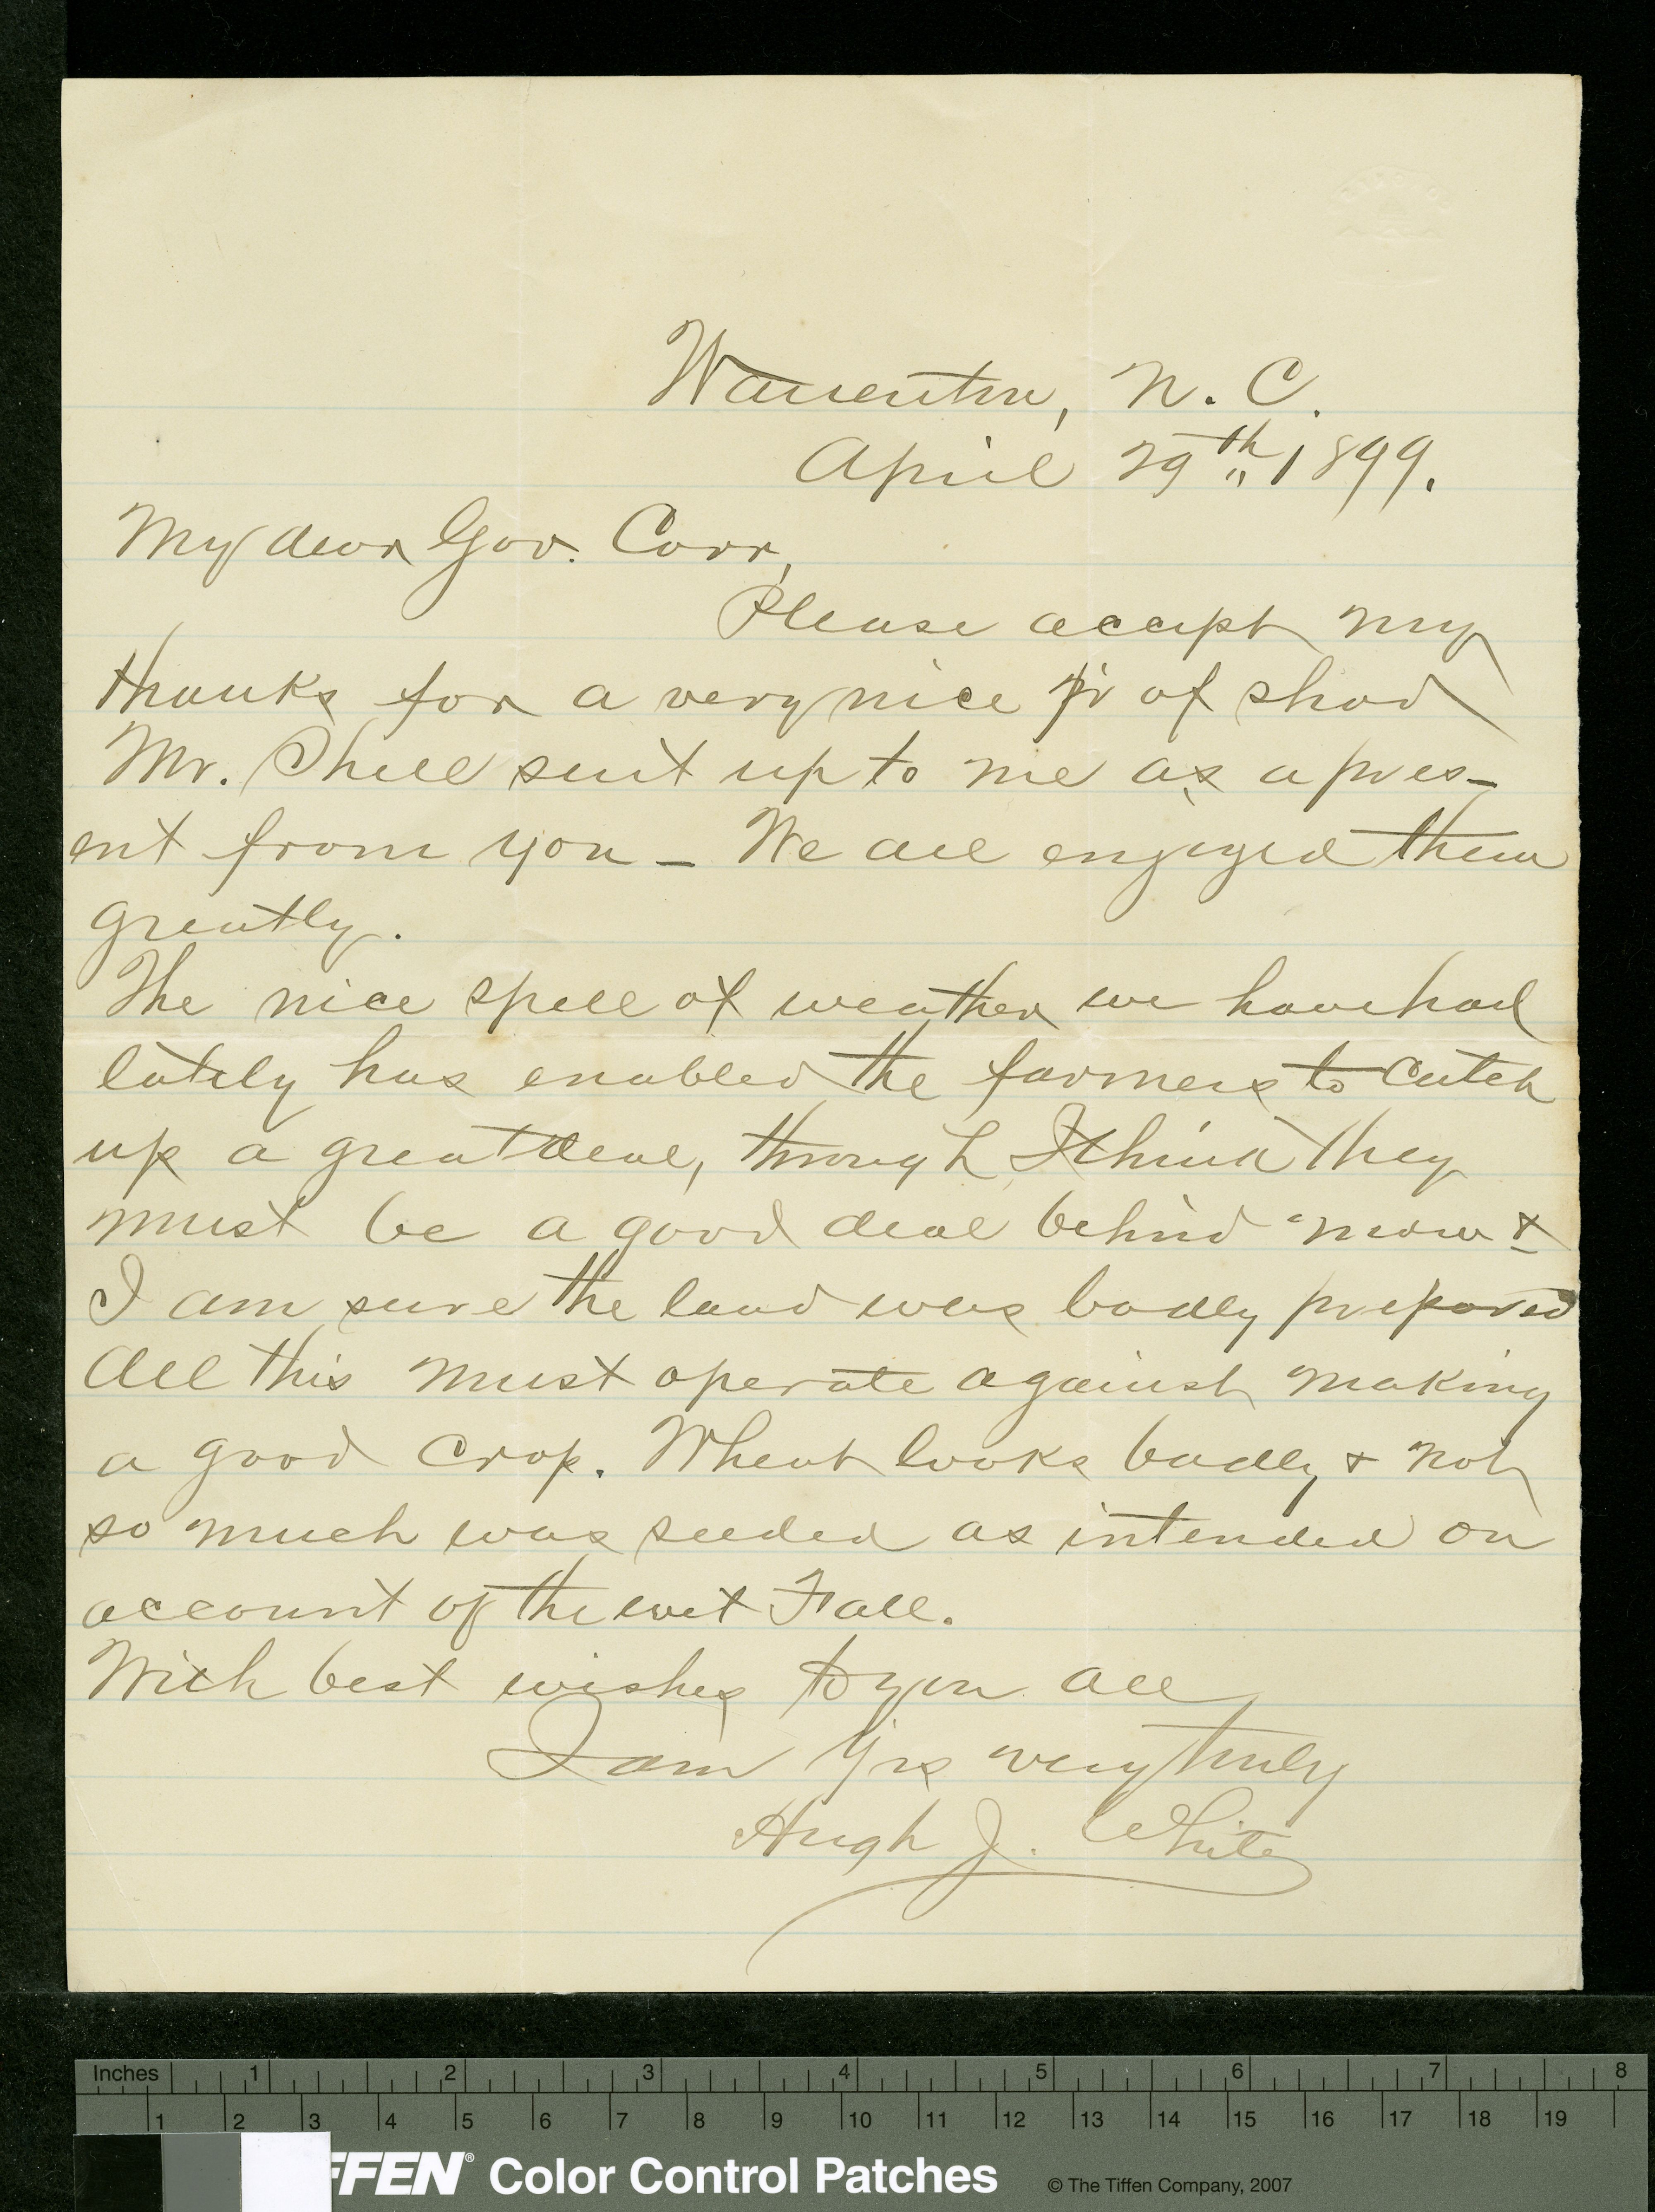 Warrenton, N. C.
April 29th 1899.
My dear Gov. Carr,
Please accept my
thanks for a very nice pr of shad
Mr. Shell sent up to me as a pres-
ent from you - We all enjoyed them
greatly.
The nice spell of weather we have had
lately has enabled the farmers to catch
up a great deal, through I think they
must be a good deal behind now &
I am sure the land was badly prepared
All this must operate against making
a good crop. Wheat looks badly & not
so much was seeded as intended on
account of the wet Fall.
With best wishes to you all
I am Yrs very truly
Hugh J. White
Inches 1 2 3 4 5 6 7 8
1 2 3 4 5 6 7 8 9 10 11 12 13 14 15 16 17 18 19
FFEN® Color Control Patches © The Tiffen Company, 2007